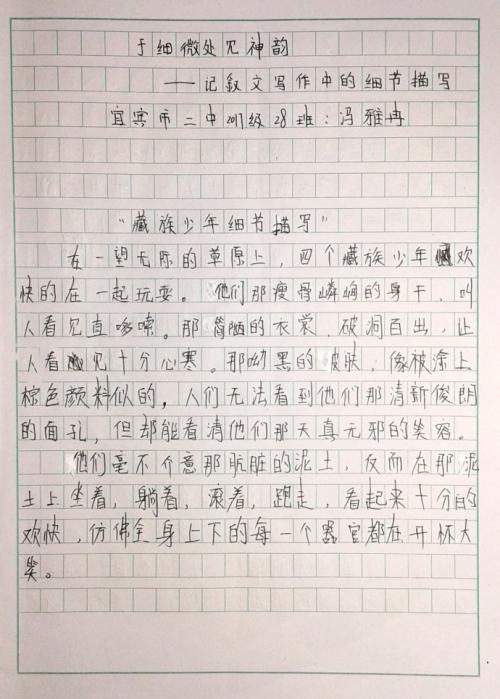 于细微处见神韵
——记叙文写作中的细节描写
宜宾市二中2017级28班：冯雅冉
“藏族少年细节描写”
在一望无际的草原上，四个藏族少年欢
快的在一起玩耍。他们那瘦骨嶙峋的身干，叫
人看见直哆嗦。那简陋的衣裳，破洞百出，让
人看见十分心寒。那呦黑的皮肤，像被涂上
棕色颜料似的，人们无法看到他们那清新俊朗
的面孔，但却能看清他们那天真无邪的笑容。
他们毫不介意那肮脏的泥土，反而在那泥
土上坐着，躺着，滚着，跑走，看起来十分的
欢快，仿佛全身上下的每一个器官都在开怀大
笑。